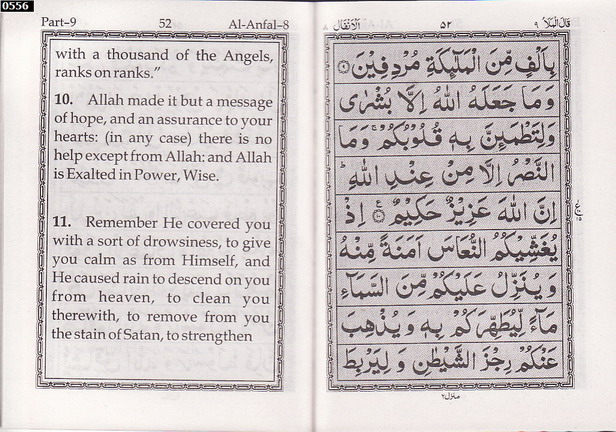 0556
Part-9 52 Al-Anfal-8
with a thousand of the Angels,
ranks on ranks.”
10. Allah made it but a message
of hope, and an assurance to your
hearts: (in any case) there is no
help except from Allah: and Allah
is Exalted in Power, Wise.
11. Remember He covered you
with a sort of drowsiness, to give
you calm as from Himself, and
He caused rain to descend on you
from heaven, to clean you
therewith, to remove from you
the stain of Satan, to strengthen
قَالَ الْمَلَاُ ٩ ٥٢ اَلْاَنْفَال ٨
بِاَلْفٍ مِّنَ الْمَلٰٓئِكَةِ مُرْدِفِيْنَ ۝٩
وَمَا جَعَلَهُ اللّٰهُ اِلَّا بُشْرٰى
وَلِتَطْمَئِنَّ بِهٖ قُلُوْبُكُمْ ۚ وَمَا
النَّصْرُ اِلَّا مِنْ عِنْدِ اللّٰهِ ؕ
اِنَّ اللّٰهَ عَزِيْزٌ حَكِيْمٌ ۝١٠ اِذْ
يُغَشِّيْكُمُ النُّعَاسَ اَمَنَةً مِّنْهُ
وَيُنَزِّلُ عَلَيْكُمْ مِّنَ السَّمَآءِ
مَآءً لِّيُطَهِّرَكُمْ بِهٖ وَيُذْهِبَ
عَنْكُمْ رِجْزَ الشَّيْطٰنِ وَلِيَرْبِطَ
منزل ٢